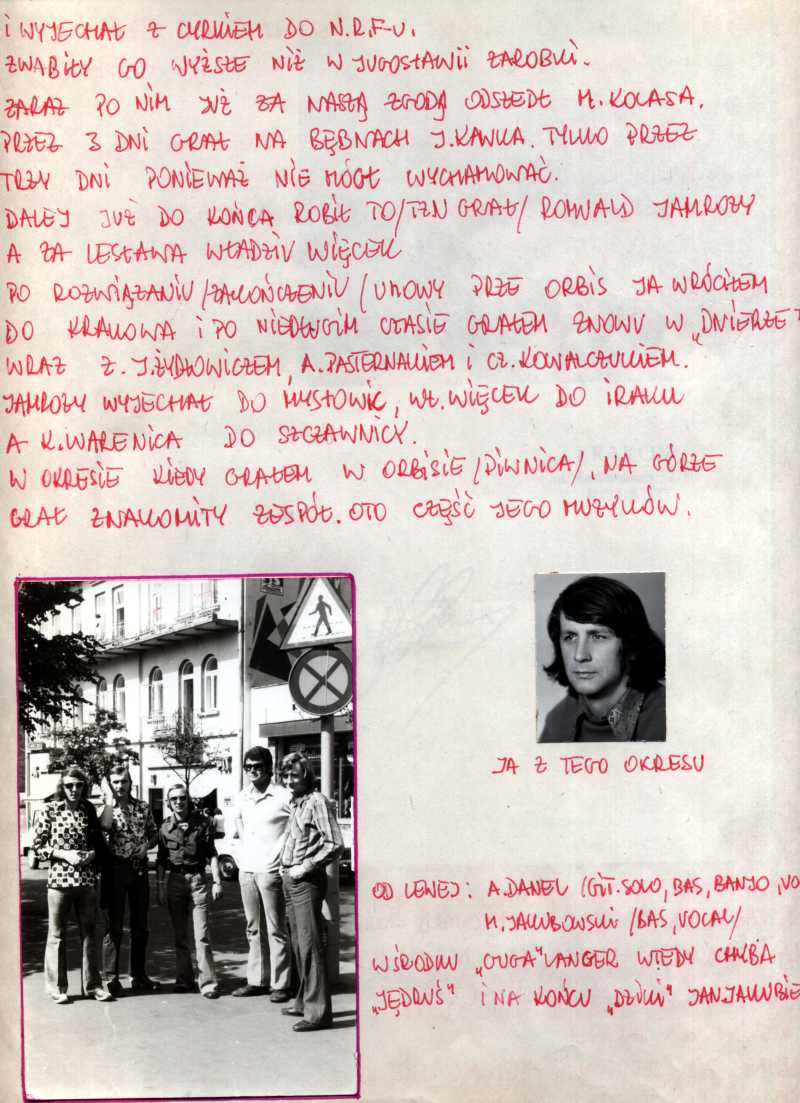 i WYJECHAŁ Z CYRKIEM DO N.R.F-U.
ZWABIŁY GO WYŻSZE NIŻ W JUGOSŁAWII ZAROBKI.
ZARAZ PO NIM JUŻ ZA NASZĄ ZGODĄ ODSZEDŁ M. KOLASA.
PRZEZ 3 DNI GRAŁ NA BĘBNACH J. KAWKA. TYLKO PRZEZ
TRZY DNI PONIEWAŻ NIE MÓGŁ WYCHAMOWAĆ.
DALEJ JUŻ DO KOŃCA ROBIŁ TO/TZN GRAŁ/ ROMUALD JAMROZY
A ZA LESŁAWA WŁADZIU WIĘCEK
PO ROZWIĄZANIU /ZAKOŃCZENIU/ UMOWY PRZE ORBIS JA WRÓCIŁEM
DO KRAKOWA i PO NIEDŁUGIM CZASIE GRAŁEM ZNOWU W „DNIERZE
WRAZ Z. J. ŻYDŁOWICZEM, A. PASTERNAKIEM i CZ. KOWALCZUKIEM.
JAMROZY WYJECHAŁ DO MYSŁOWIC, WŁ. WIĘCEK DO iRAKU
A K. WARENICA DO SZCZAWNICY.
W OKRESIE KIEDY GRAŁEM W ORBISIE /PIWNICA/, NA GÓRZE
GRAŁ ZNAKOMITY ZESPÓŁ. OTO CZĘŚĆ JEGO MUZYKÓW.
JA Z TEGO OKRESU
OD LEWEJ: A. DANEL (GIT. SOLO, BAS, BANJO, VO
M. JAKUBOWSKI /BAS, VOCAL/
W ŚRODKU „OUGA" LANGER WTEDY CHYBA
„JĘDRUŚ" i NA KOŃCU „DZIKI" JAN JAKUBIE